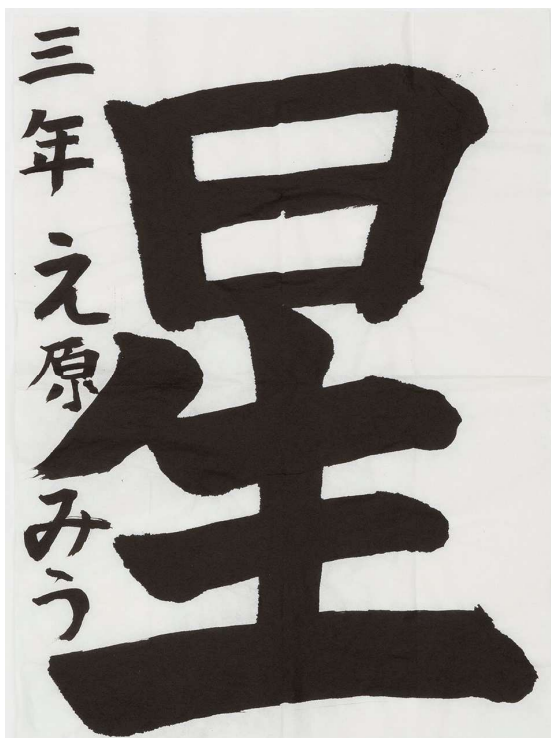 星
三年 え原 みう